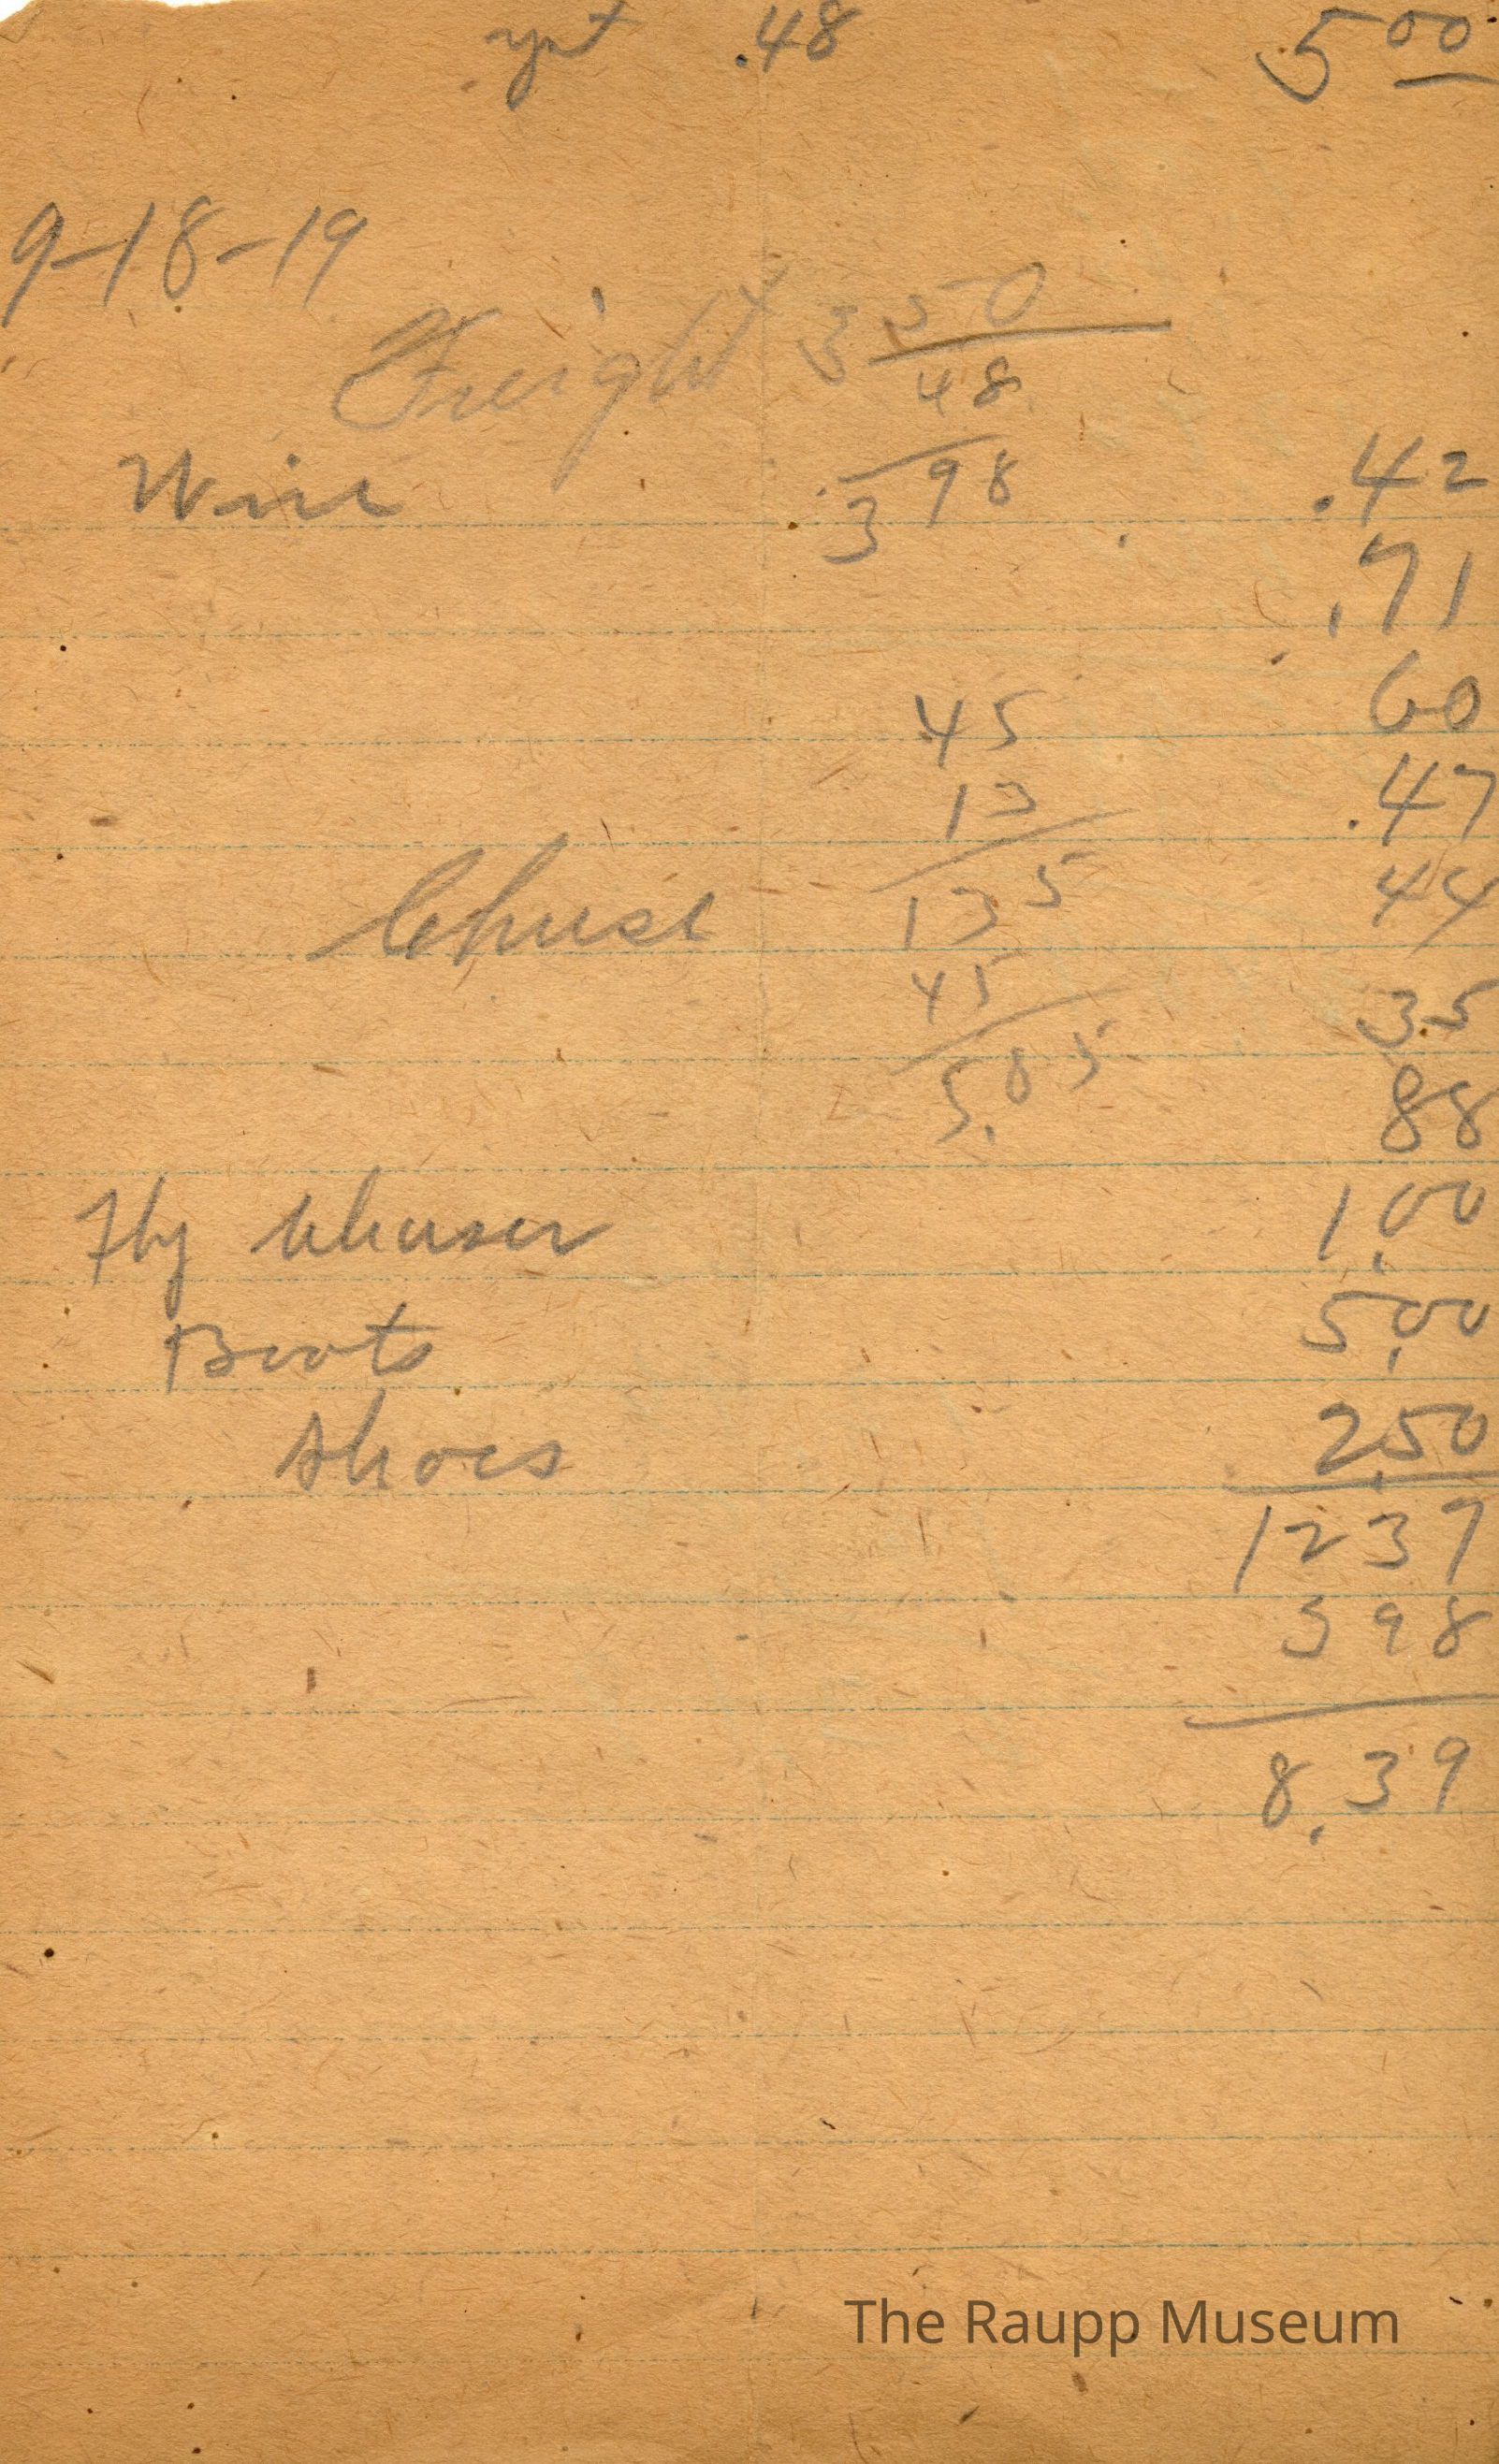 .48 5 00
9-18-19
Freight 3 50
48
Wire 3 98 .42
.71
45 60
13 .47
Chese 135 44
45 35
5.85 88
Fly chaser 1.00
Boots 5.00
Shoes 2.50
1237
398
8.39
The Raupp Museum